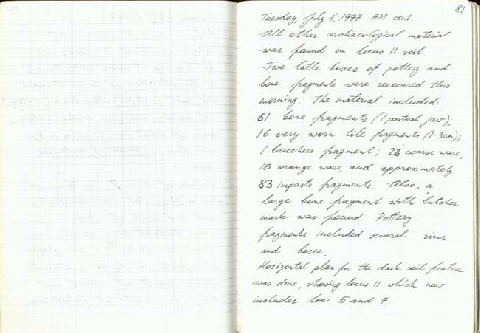 81
Tuesday, July 8, 1997 AM cont.
All other archaeological material
was found in locus 11 soil.
Two latte boxes of pottery and
bone fragments were recovered this
morning. The material included:
61 bone fragments (1 partial jaw);
16 very worn tile fragments (? 3cm);
1 bucchero fragment; 23 coarse ware,
18 orange ware and approximately
53 impasto fragments. Also, a
large bone fragment with butcher
mark was found. Pottery
fragments included several rims
and bases.
Horizontal plan for the dark soil feature
was done, showing locus 11 which now
includes loci 5 and 7